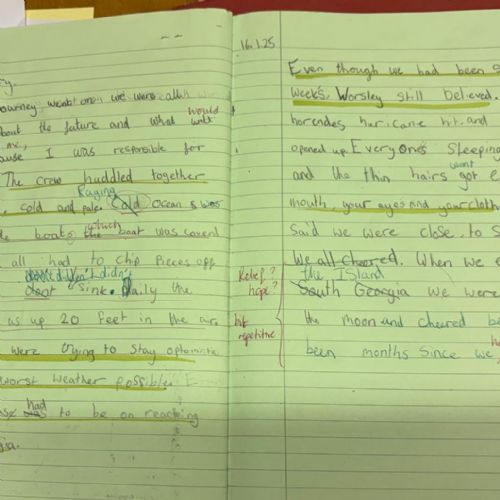 ry.
journey went on we were all
would
about the future and what will
me,
ause I was responsible for
The crew huddled together
Raging
, cold and pale. Cold Ocean s was
which
boat the boat was coverd
all had to chip pieces off
didn't didn't
dont sink. Daily the
as up 20 feet in the air.
were trying to stay optomistic
worst weather possible
had
was to be on reaching
gia.
16.1.25
Even though we had been
weeks, Worsley still believed.
horendes huricane hit and
opened up. Everyones sleeping
went
and the thin hairs got
mouth, your eyes and your cloth
Said we were close to S
We all cheered. When we
the Island
South Georgia we were
Relief?
hope?
the moon and cheered
bit
repetitive
been months since we